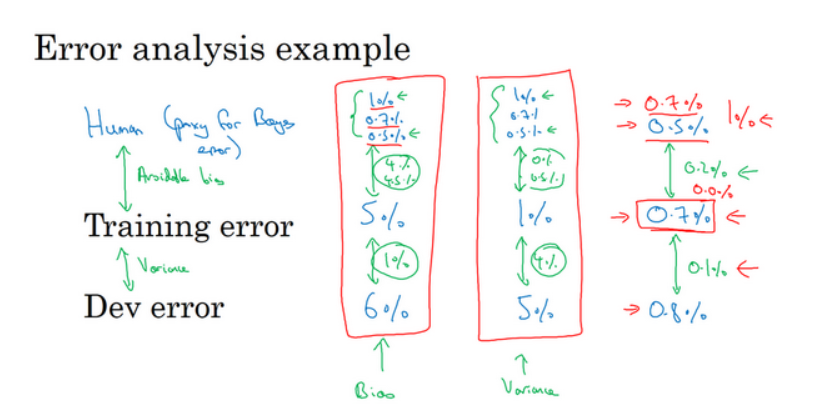 Error analysis example
Human (proxy for Bayes error)
Avoidable bias
Training error
Variance
Dev error
1%
0.7%
0.5%
4%
4.5%
5%
1%
6%
Bias
1%
0.7%
0.5%
0%
0.5%
1%
4%
5%
Variance
0.7% 1%
0.5%
0.2%
0.0%
0.7%
0.1%
0.8%